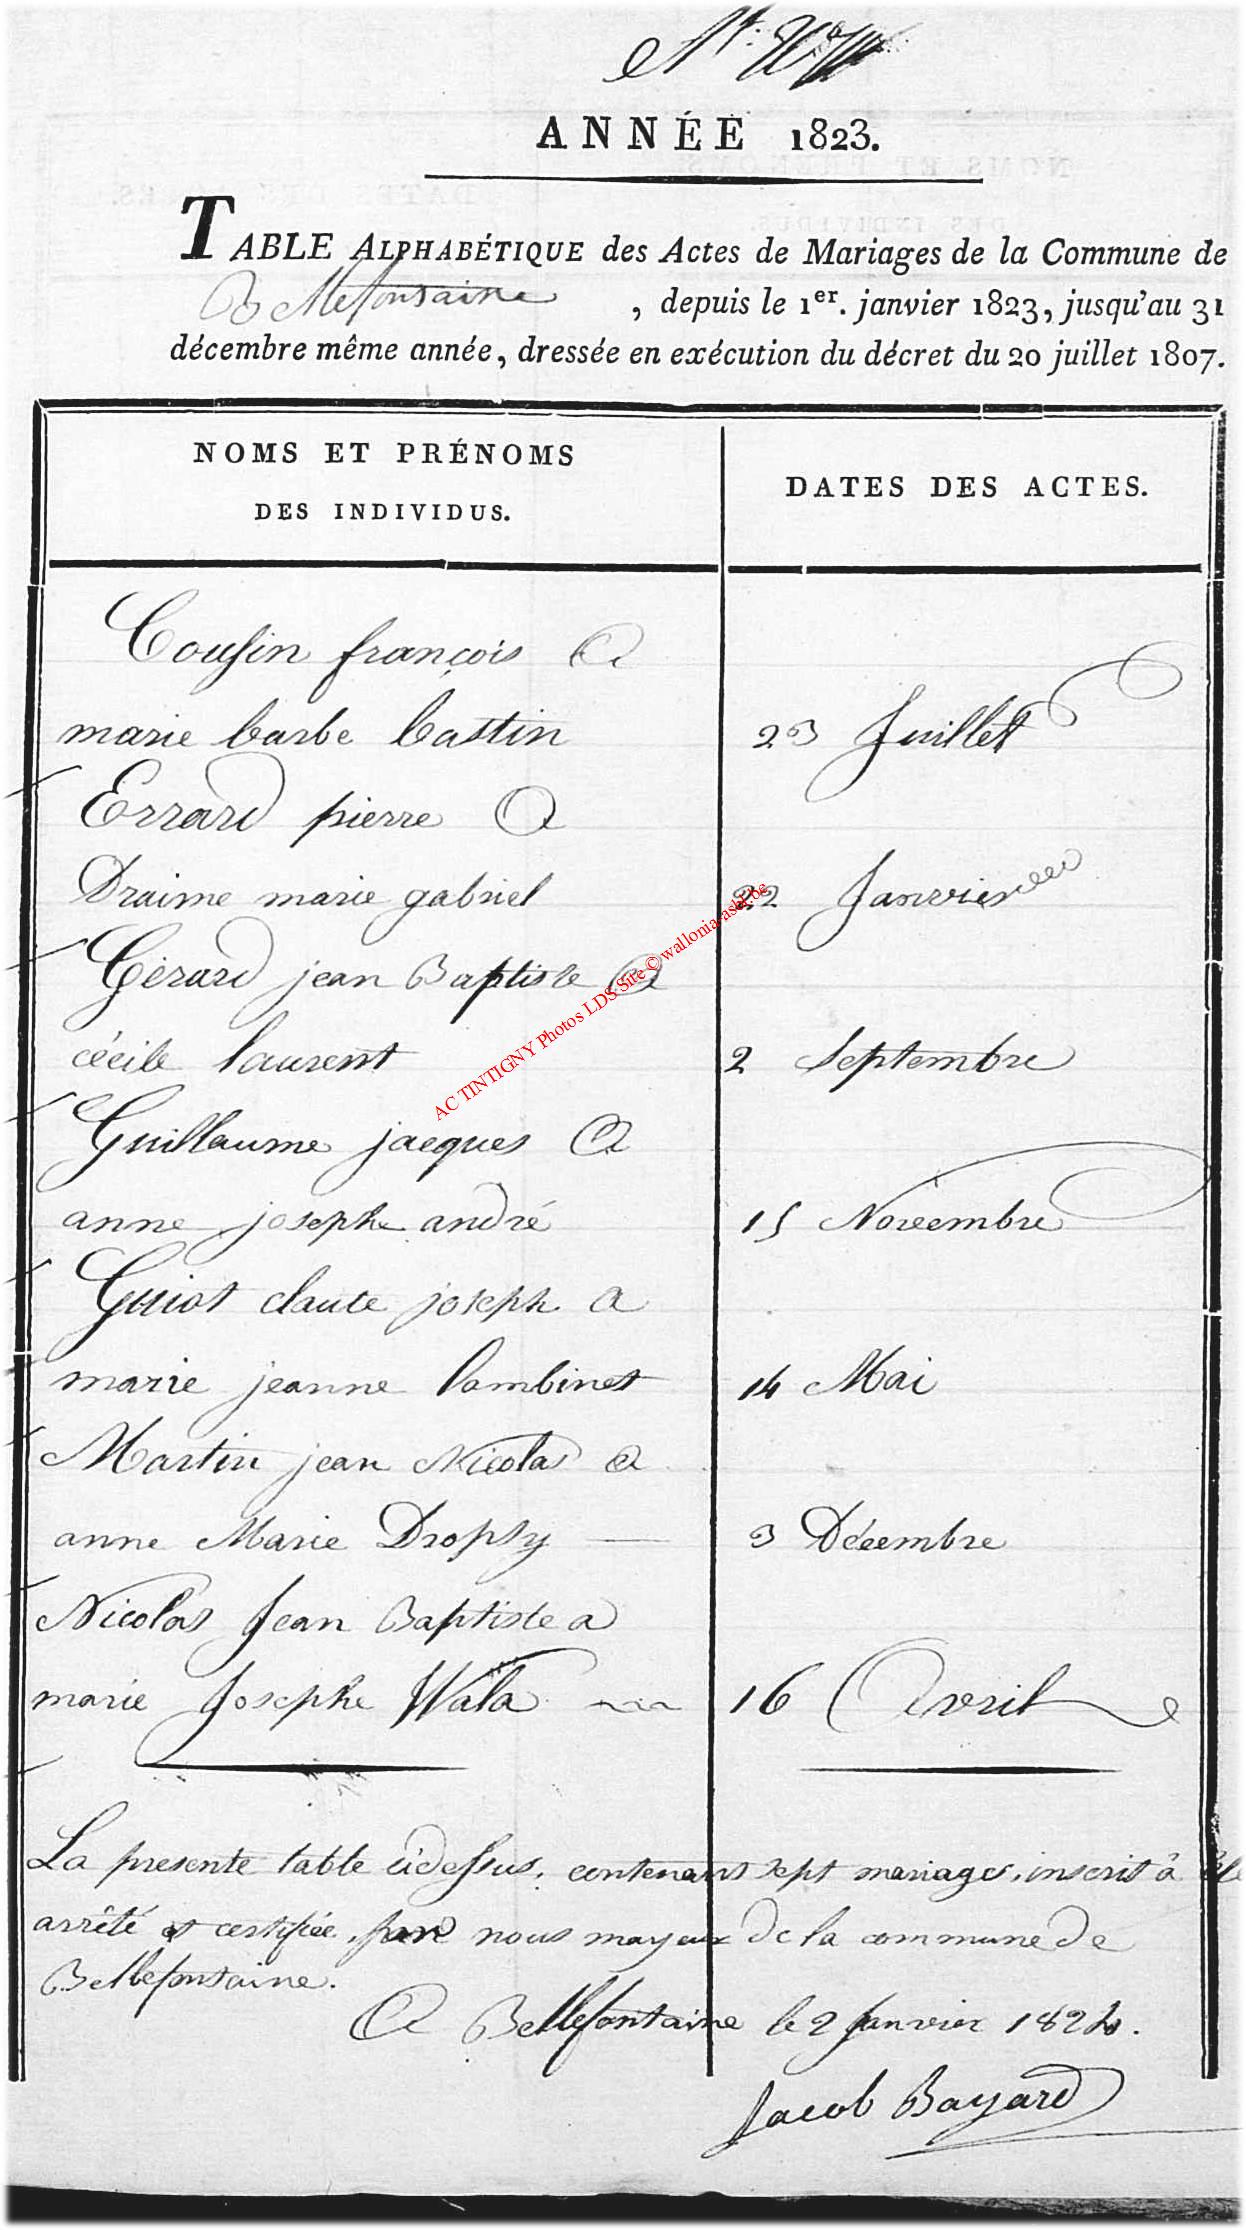 ANNÉE 1823.
TABLE ALPHABÉTIQUE des Actes de Mariages de la Commune de
Bellefontaine, depuis le 1er. janvier 1823, jusqu'au 31
décembre même année, dressée en exécution du décret du 20 juillet 1807.
NOMS ET PRÉNOMS
DES INDIVIDUS.
DATES DES ACTES.
Cousin françois a
marie barbe bastin 23 Juillet
Errard pierre a
Draime marie gabriel 22 Janvier
Gérard jean Baptiste a
cécile laurent 2 Septembre
Guillaume jacques a
anne josephe andré 15 Novembre
Guiot claute joseph a
marie jeanne lambinet 14 Mai
Martin jean Nicolas a
anne Marie Dropsy 3 Décembre
Nicolas Jean Baptiste a
marie Josephe Wala 16 Avril
AC TINTIGNY Photos LDS Site © wallonia-asbl.be
La presente table cidessus, contenant sept mariages, inscrit à été
arrêté et certifiée, par nous mayeur de la commune de
Bellefontaine.
A Bellefontaine le 2 Janvier 1824.
Jacob Bayard